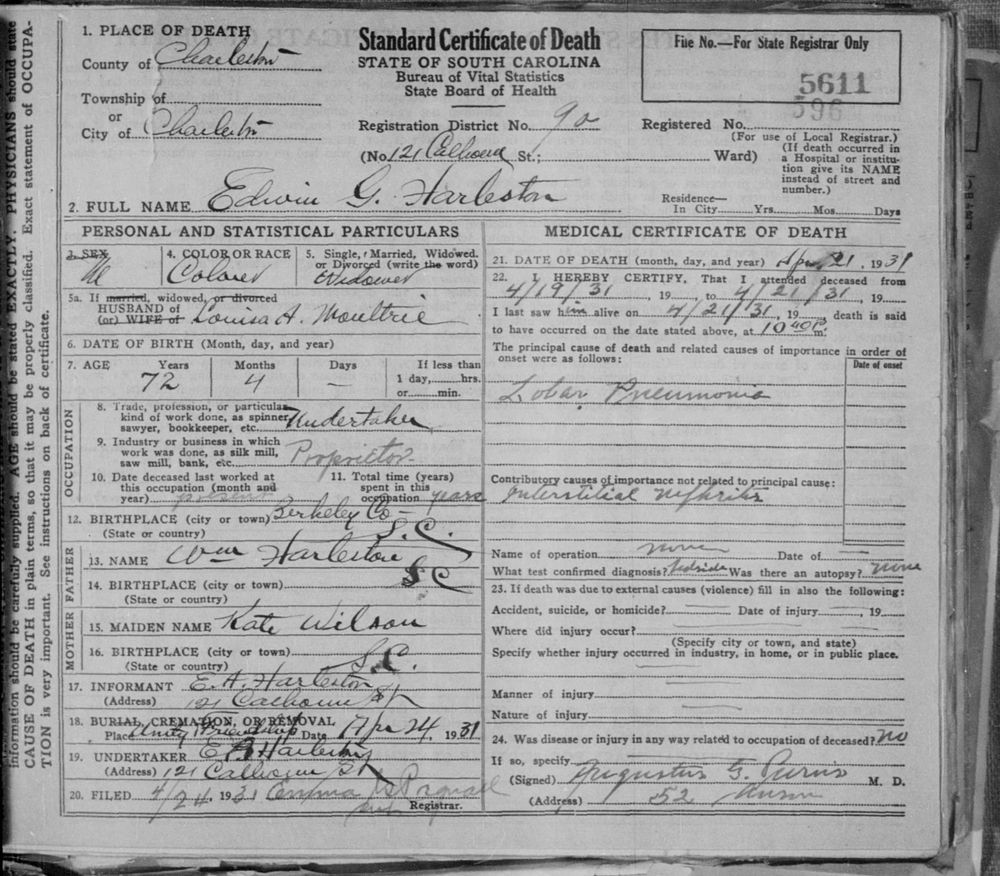 information should be carefully supplied. AGE should be stated EXACTLY. PHYSICIANS should state
CAUSE OF DEATH in plain terms, so that it may be properly classified. Exact statement of OCCUPA-
TION is very important. See instructions on back of certificate.
1. PLACE OF DEATH
County of Charleston
Township of
or
City of Charleston
Standard Certificate of Death
STATE OF SOUTH CAROLINA
Bureau of Vital Statistics
State Board of Health
Registration District No. 9a
(No. 121 Calhoun St.; Ward)
File No.—For State Registrar Only
5611
596
Registered No.
(For use of Local Registrar.)
(If death occurred in
a Hospital or institu-
tion give its NAME
instead of street and
number.)
2. FULL NAME Edwin G. Harleston
Residence—
In City Yrs. Mos. Days
PERSONAL AND STATISTICAL PARTICULARS
3. SEX
M
4. COLOR OR RACE
Colored
5. Single, Married, Widowed,
or Divorced (write the word)
Widower
5a. If married, widowed, or divorced
HUSBAND of
(or) WIFE of Louisa A. Moultrie
6. DATE OF BIRTH (Month, day, and year)
7. AGE Years Months Days If less than
72 4 — 1 day, hrs.
or min.
OCCUPATION
8. Trade, profession, or particular
kind of work done, as spinner,
sawyer, bookkeeper, etc. Undertaker
9. Industry or business in which
work was done, as silk mill,
saw mill, bank, etc. Proprietor
10. Date deceased last worked at
this occupation (month and
year) present
11. Total time (years)
spent in this
occupation years
12. BIRTHPLACE (city or town) Berkeley Co—
(State or country) S.C.
FATHER
13. NAME Wm Harleston
14. BIRTHPLACE (city or town) S C
(State or country)
MOTHER
15. MAIDEN NAME Kate Wilson
16. BIRTHPLACE (city or town)
(State or country) S.C.
17. INFORMANT E. A. Harleston
(Address) 121 Calhoun St
18. BURIAL, CREMATION, OR REMOVAL
Place Unity Friendship Date Apr 24, 1931
19. UNDERTAKER E A Harleston
(Address) 121 Calhoun St
20. FILED 4/24, 1931
Registrar.
MEDICAL CERTIFICATE OF DEATH
21. DATE OF DEATH (month, day, and year) Apr 21, 1931
22. I HEREBY CERTIFY, That I attended deceased from
4/19/31, 19 to 4/21/31, 19
I last saw him alive on 4/21/31, 19 death is said
to have occurred on the date stated above, at 10 40 P m.
The principal cause of death and related causes of importance in order of
onset were as follows:
Date of onset
Lobar Pneumonia
Contributory causes of importance not related to principal cause:
Interstitial nephritis
Name of operation none Date of —
What test confirmed diagnosis? bedside Was there an autopsy? none
23. If death was due to external causes (violence) fill in also the following:
Accident, suicide, or homicide? — Date of injury — 19
Where did injury occur?
(Specify city or town, and state)
Specify whether injury occurred in industry, in home, or in public place.
Manner of injury
Nature of injury
24. Was disease or injury in any way related to occupation of deceased? no
If so, specify
(Signed) Augustus G. M. D.
(Address) 52